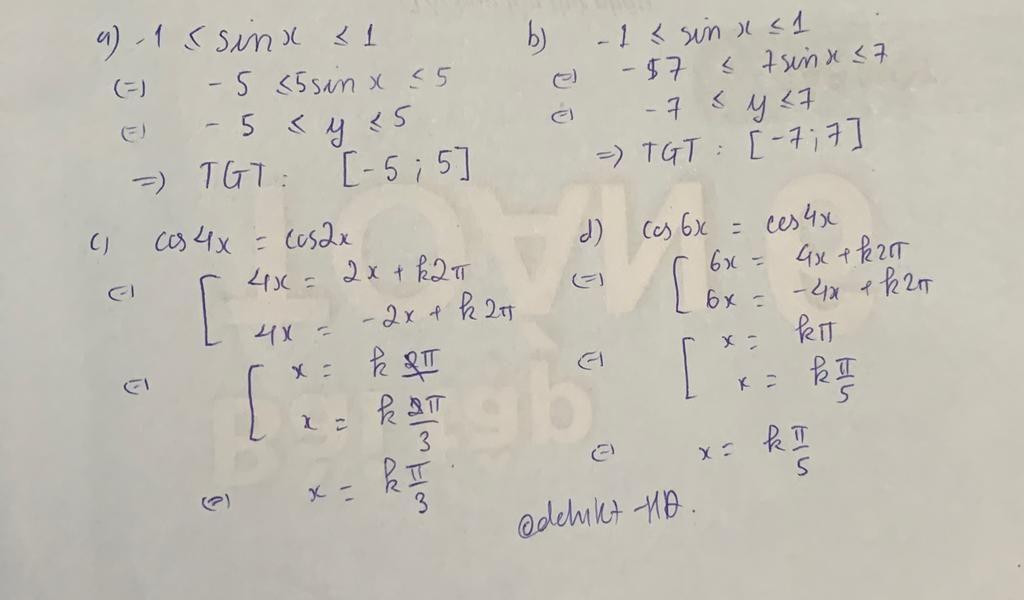 a) -1 ≤ sin x ≤ 1
(=) -5 ≤ 5sin x ≤ 5
(=) -5 ≤ y ≤ 5
=) TGT: [-5; 5]
b) -1 ≤ sin x ≤ 1
(=) -7 ≤ 7sin x ≤ 7
(=) -7 ≤ y ≤ 7
=) TGT: [-7; 7]
c) cos4x = cos2x
(=) [ 4x = 2x + k2π
4x = -2x + k2π
(=) [ x = kπ
x = k π/3
(=) x = k π/3
d) cos6x = cos4x
(=) [ 6x = 4x + k2π
6x = -4x + k2π
(=) [ x = kπ
x = k π/5
(=) x = k π/5
TOÁN 9
Bài tập